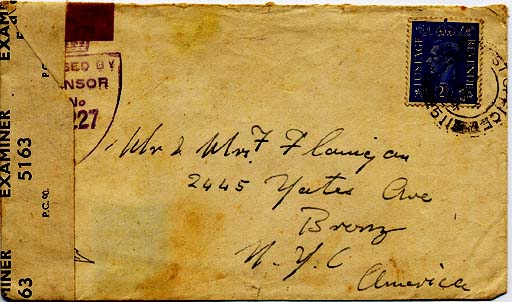 EXAMINER 5163
P.C. 90.
EXAMINER
MINER 63
SED BY
NSOR
No
227
POSTAGE
REVENUE
2½
OFFICE
Mr & Mrs F Flanigan
2445 Yates Ave
Bronx
N.Y.C
America